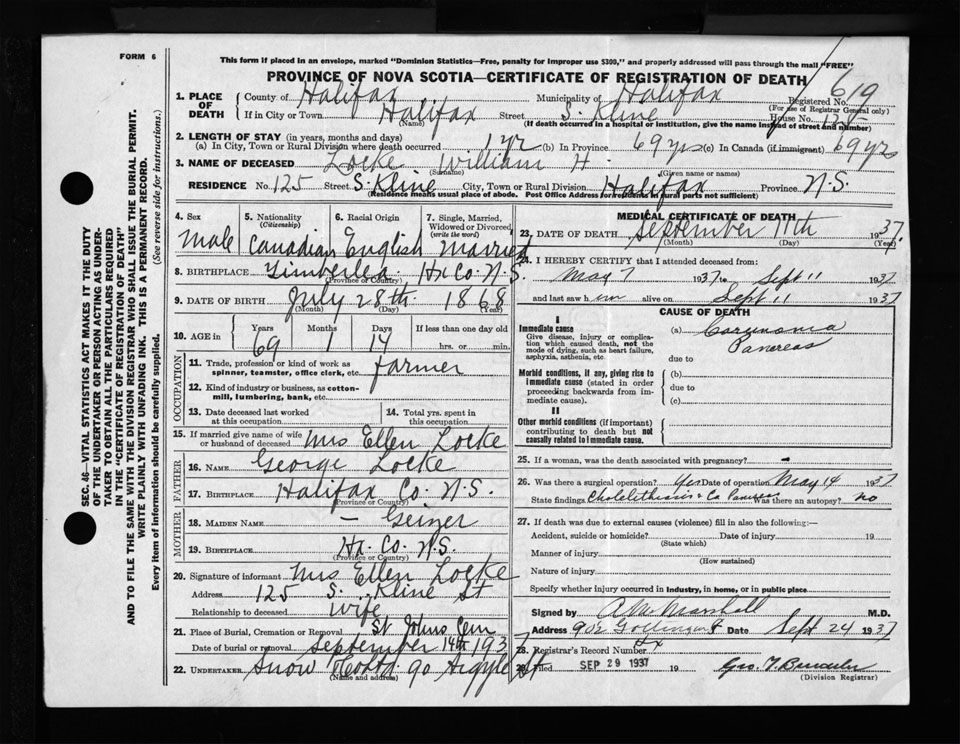 FORM 6
This form if placed in an envelope, marked "Dominion Statistics—Free, penalty for improper use $300," and properly addressed will pass through the mail "FREE"
PROVINCE OF NOVA SCOTIA—CERTIFICATE OF REGISTRATION OF DEATH
Registered No. 619
(For use of Registrar General only)
1. PLACE OF DEATH County of Halifax Municipality of Halifax
If in City or Town Halifax Street S. Kline House No. 125
(Name) (If death occurred in a hospital or institution, give the name instead of street and number)
2. LENGTH OF STAY (in years, months and days)
(a) In City, Town or Rural Division where death occurred 1 yr (b) In Province 69 yrs (c) In Canada (if immigrant) 69 yrs
3. NAME OF DECEASED Locke William H.
(Surname) (Given name or names)
RESIDENCE No. 125 Street S. Kline City, Town or Rural Division Halifax Province N.S.
(Residence means usual place of abode. Post Office Address for residents in rural parts not sufficient)
4. Sex 5. Nationality (Citizenship) 6. Racial Origin 7. Single, Married, Widowed or Divorced (write the word)
Male Canadian English Married
8. BIRTHPLACE Timberlea Hx Co. N.S.
(Province or Country)
9. DATE OF BIRTH July 28th 1868
(Month) (Day) (Year)
10. AGE in Years Months Days If less than one day old
69 1 14 hrs. or min.
OCCUPATION
11. Trade, profession or kind of work as spinner, teamster, office clerk, etc. Farmer
12. Kind of industry or business, as cotton-mill, lumbering, bank, etc.
13. Date deceased last worked at this occupation
14. Total yrs. spent in this occupation
15. If married give name of wife or husband of deceased Mrs Ellen Locke
FATHER
16. NAME George Locke
17. BIRTHPLACE Halifax Co. N.S.
(Province or Country)
MOTHER
18. MAIDEN NAME — Geizer
19. BIRTHPLACE Hx. Co. N.S.
(Province or Country)
20. Signature of informant Mrs Ellen Locke
Address 125 S. Kline St
Relationship to deceased Wife
21. Place of Burial, Cremation or Removal St Johns Cem
Date of burial or removal September 14th 1937
22. UNDERTAKER Snow 90 Argyle St
(Name and address)
MEDICAL CERTIFICATE OF DEATH
23. DATE OF DEATH September 11th 1937
(Month) (Day) (Year)
24. I HEREBY CERTIFY that I attended deceased from:
May 7 1937 to Sept 11 1937
and last saw him alive on Sept 11 1937
CAUSE OF DEATH
I
Immediate cause
Give disease, injury or complication which caused death, not the mode of dying, such as heart failure, asphyxia, asthenia, etc.
(a) Carcinoma
Pancreas
due to
Morbid conditions, if any, giving rise to immediate cause (stated in order proceeding backwards from immediate cause).
(b)
due to
(c)
II
Other morbid conditions (if important) contributing to death but not causally related to immediate cause.
25. If a woman, was the death associated with pregnancy? -
26. Was there a surgical operation? Yes Date of operation May 14 1937
State findings Cholelithiasis & Ca Pancreas Was there an autopsy? no
27. If death was due to external causes (violence) fill in also the following:—
Accident, suicide or homicide? Date of injury 19
(State which)
Manner of injury
(How sustained)
Nature of injury
Specify whether injury occurred in Industry, in home, or in public place
Signed by A. M. Marshall M.D.
Address 902 Gottingen St Date Sept 24 1937
Hx
28. Registrar's Record Number
Filed SEP 29 1937 19
(Division Registrar)
SEC. 46—VITAL STATISTICS ACT MAKES IT THE DUTY
OF THE UNDERTAKER OR PERSON ACTING AS UNDER-
TAKER TO OBTAIN ALL THE PARTICULARS REQUIRED
IN THE "CERTIFICATE OF REGISTRATION OF DEATH"
AND TO FILE THE SAME WITH THE DIVISION REGISTRAR WHO SHALL ISSUE THE BURIAL PERMIT.
WRITE PLAINLY WITH UNFADING INK. THIS IS A PERMANENT RECORD.
Every item of information should be carefully supplied. (See reverse side for instructions.)